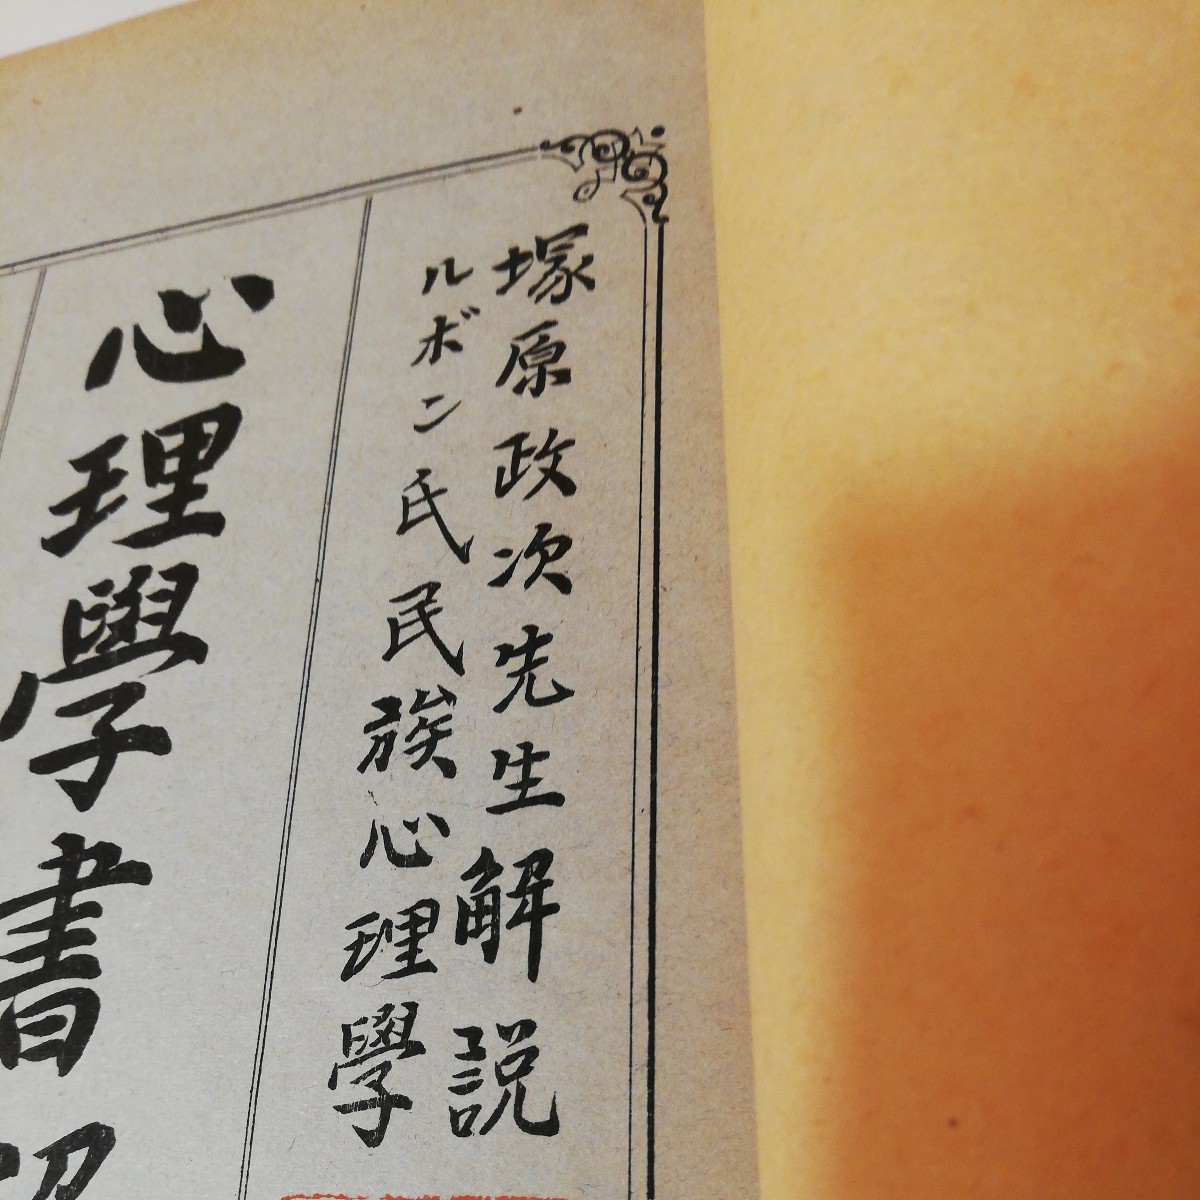 塚原政次先生解説
ルボン氏民族心理學
心理學書解